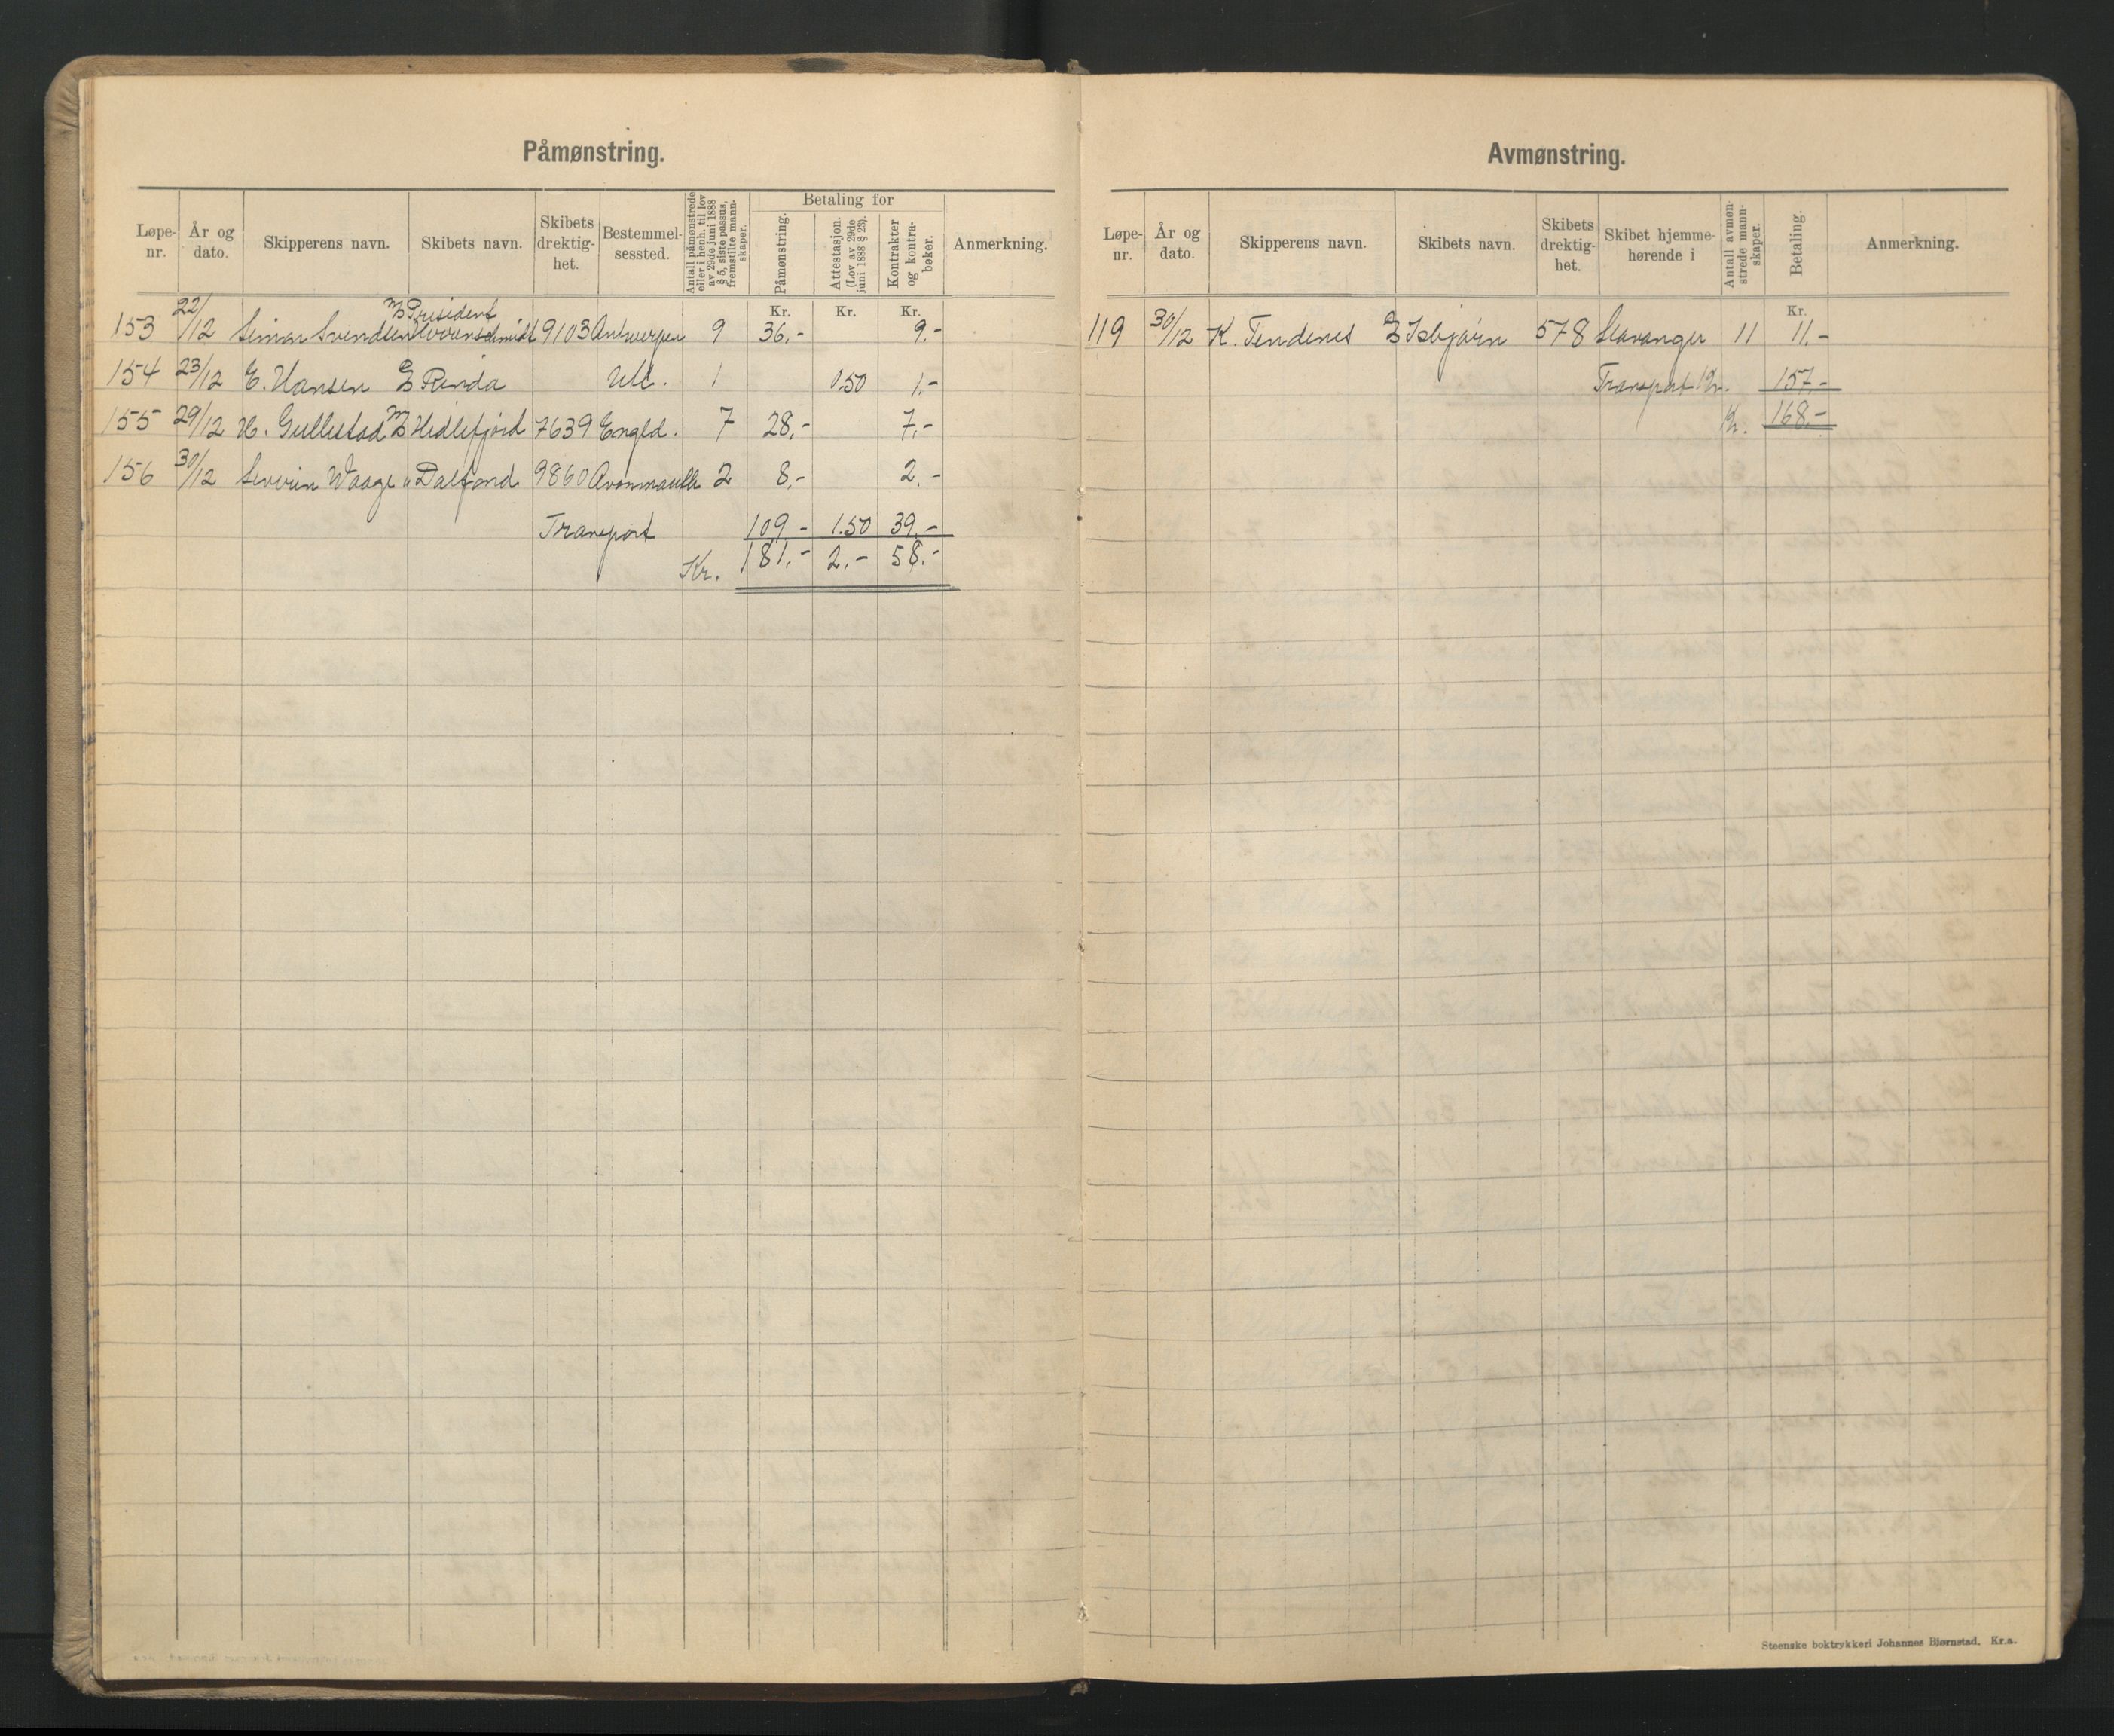 Påmønstring.
Løpe-nr.
År og dato.
Skipperens navn.
Skibets navn.
Skibets drektig-het.
Bestemmel-sessted.
Antall påmønstrede eller i henh. til lov av 29de juni 1888 § 5, siste passus, fremstilte mann-skaper.
Betaling for
Påmønstring.
Attestasjon. (Lov av 29de juni 1888 § 23).
Kontrakter og kontra-bøker.
Anmerkning.
Kr. Kr. Kr.
President
153 22/12 Svendsen 9103 Antwerpen 9 36.- 9.-
154 23/12 E. Hansen Renda Utl. 1 0.50 1.-
155 29/12 H. Gullestad Hidlefjord 7639 Engld. 7 28.- 7.-
156 30/12 Severin Waage " Dalfond 9860 Avonmouth 2 8.- 2.-
Transport 109- 1.50 39.-
Kr. 181.- 2.- 58.-
Avmønstring.
Løpe-nr.
År og dato.
Skipperens navn.
Skibets navn.
Skibets drektig-het.
Skibet hjemme-hørende i
Antall avmøn-strede mann-skaper.
Betaling.
Anmerkning.
Kr.
119 30/12 K. Tendenes Isbjørn 578 Stavanger 11 11.-
Transport Kr. 157.-
Kr. 168.-
Steenske boktrykkeri Johannes Bjørnstad. Kr.a.